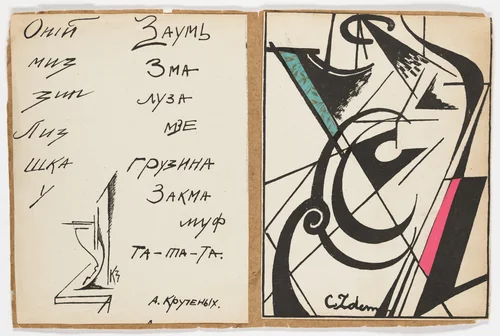 Оній
миз
зип
Лиз
шка
у
Кз
Заумь
Зма
луза
мзе
грузина
Закма
муф
та-та-та.
А. Крученых.